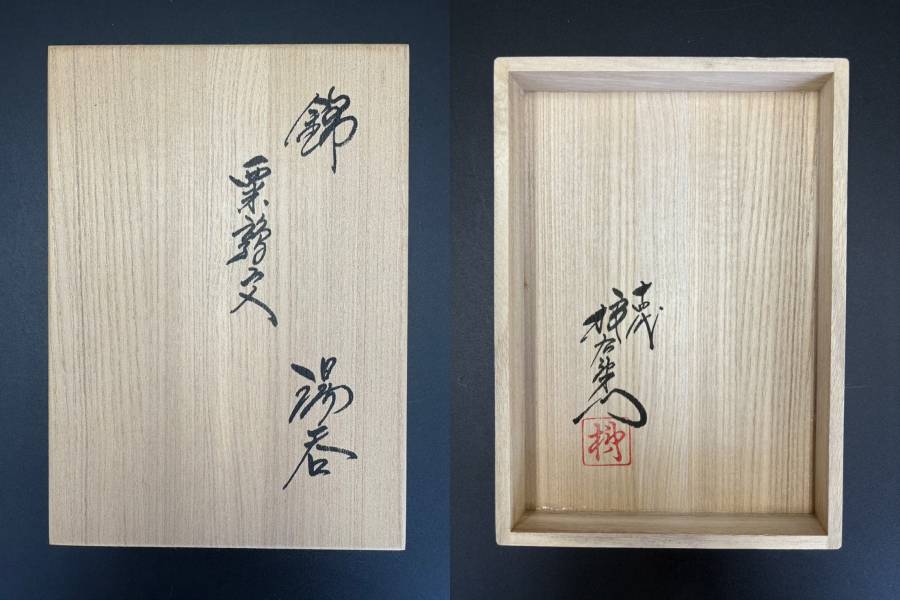 錦
粟鶉文
湯呑
十四代
柿右衛門
柿